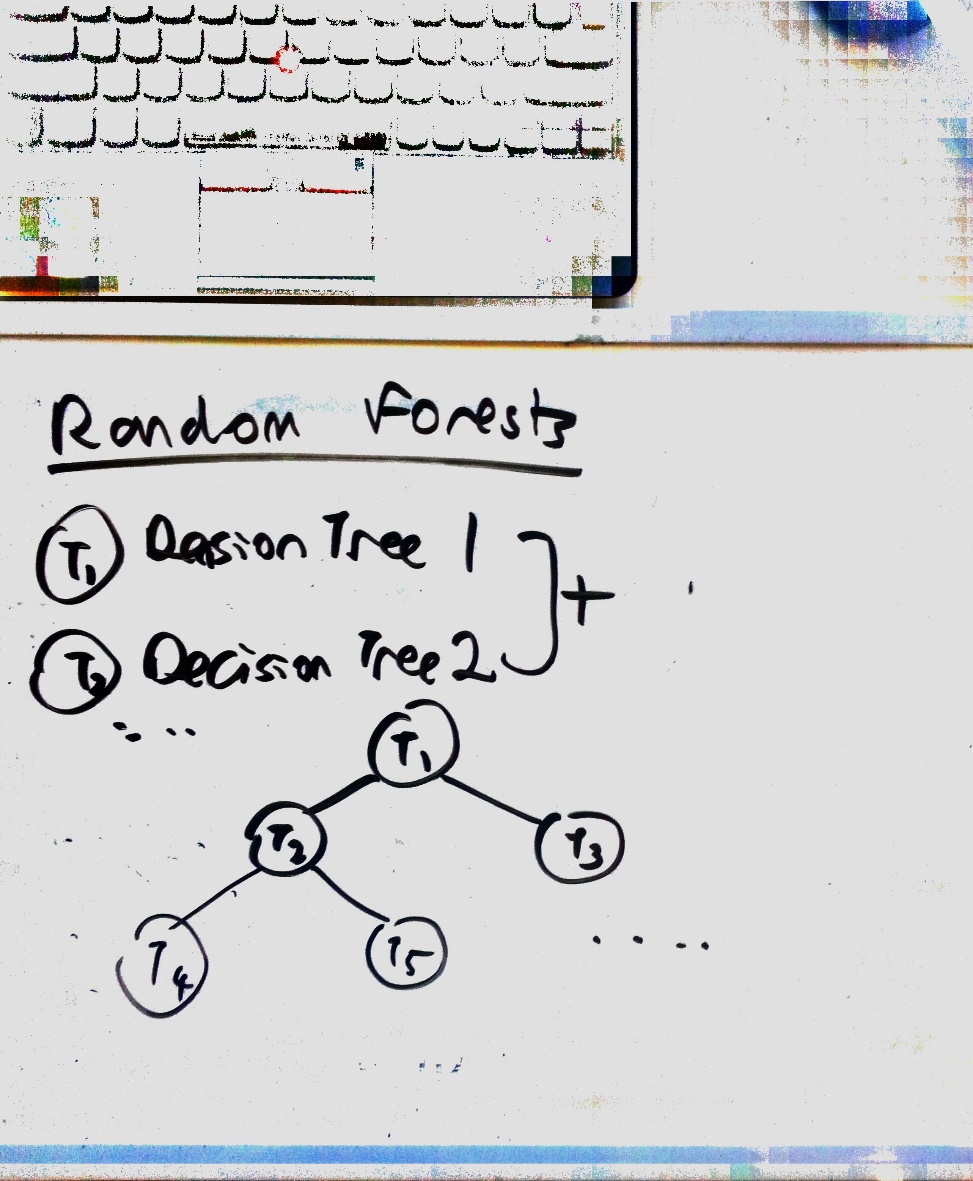 Random Forests
T1 Decision Tree 1
+
T2 Decision Tree 2
....
T1
T2 T3
T4 T5 ....